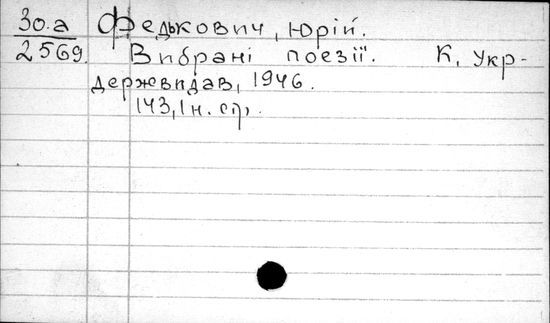 30.а Федькович, Юрій.
2569. Вибрані поезії. К, Укр-
держвидав, 1946.
143, 1 н. ст.